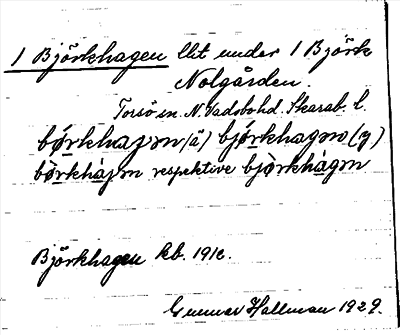 1 Björkhagen lht under 1 Björk
Nolgården.
Torsö sn. N. Vadsbo hd. Skarab. l.
bǿrkhaʒən (ä) bjǿrkhagən (y)
bö̀rkhàʒən respektive bjö̀rkhàgən
Björkhagen kb. 1910.
Gunnar Hallman 1929.